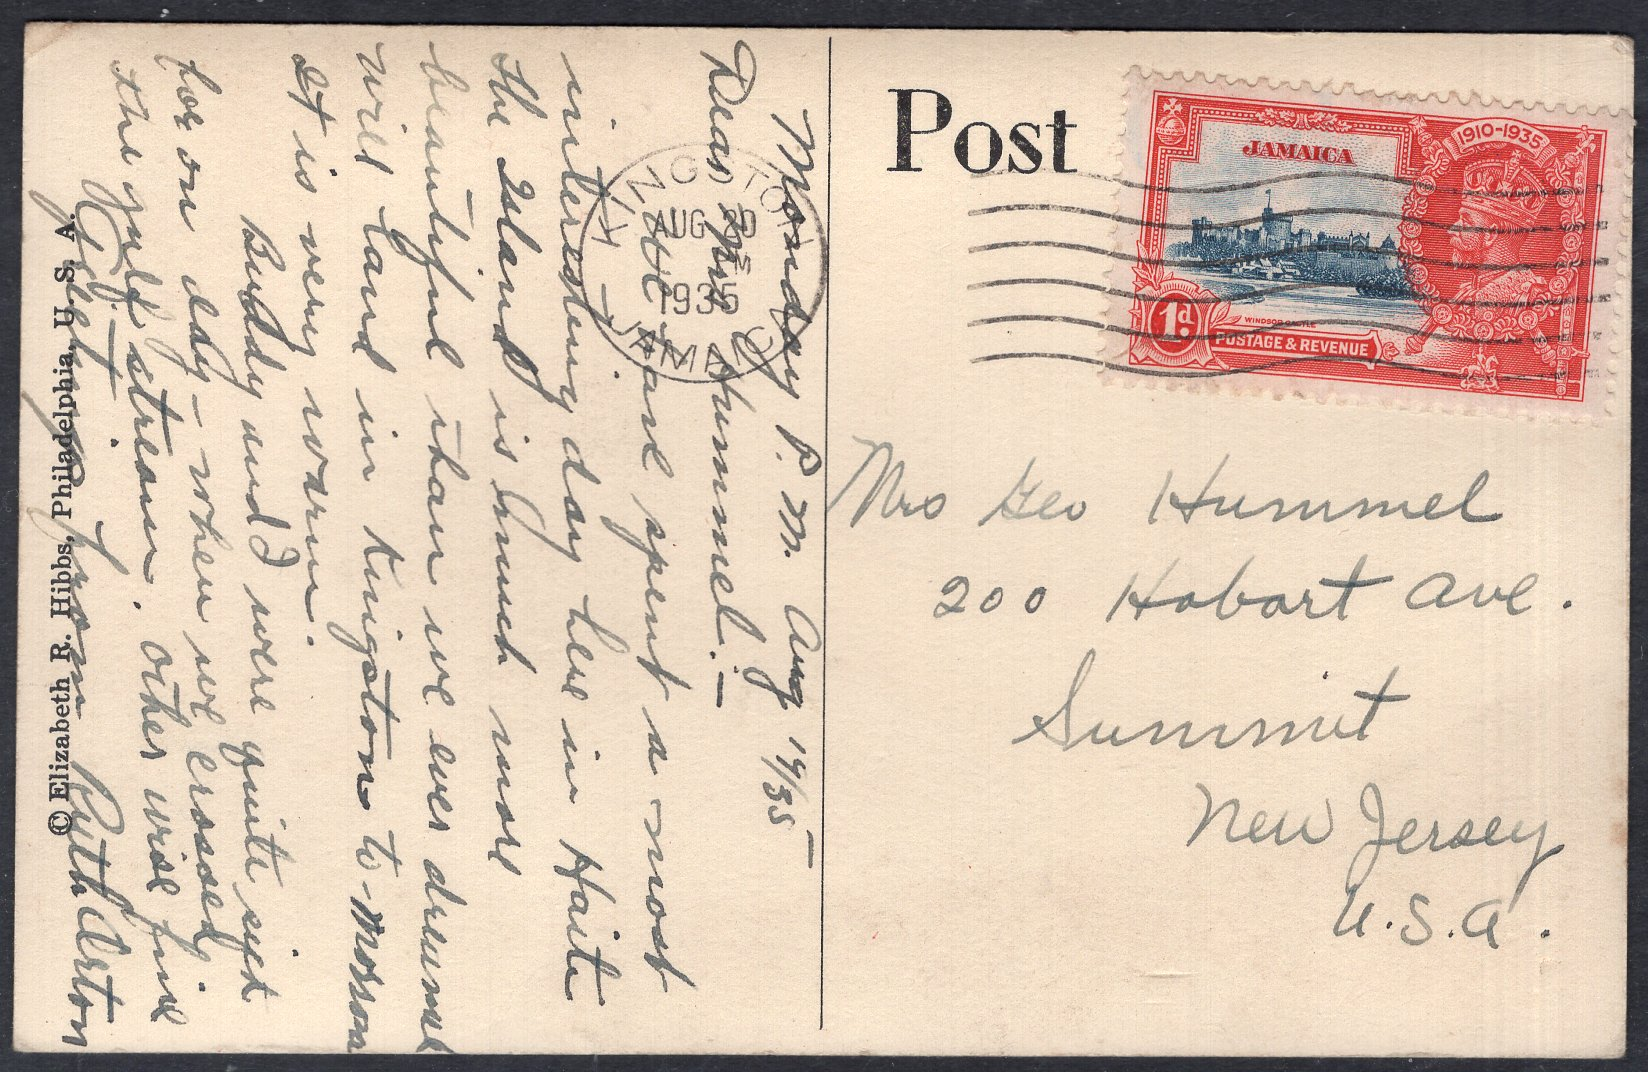 Monday P. M. Aug 19/35
Dear Mrs Hummel. —
We have spent a most
interesting day here in Haite
the Island is much more
beautiful than we ever dreamed
will land in Kingston to-morrow
It is very warm.
Buddy and I were quite sick
for one day — when we crossed
the gulf stream. Other wise fine
From Ruth Orton
© Elizabeth R. Hibbs, Philadelphia, U. S. A.
KINGSTON
AUG 20
1935
JAMAICA
Post
1910-1935
JAMAICA
WINDSOR CASTLE
1d.
POSTAGE & REVENUE
Mrs Geo Hummel
200 Hobart Ave.
Summit
New Jersey
U.S.A.